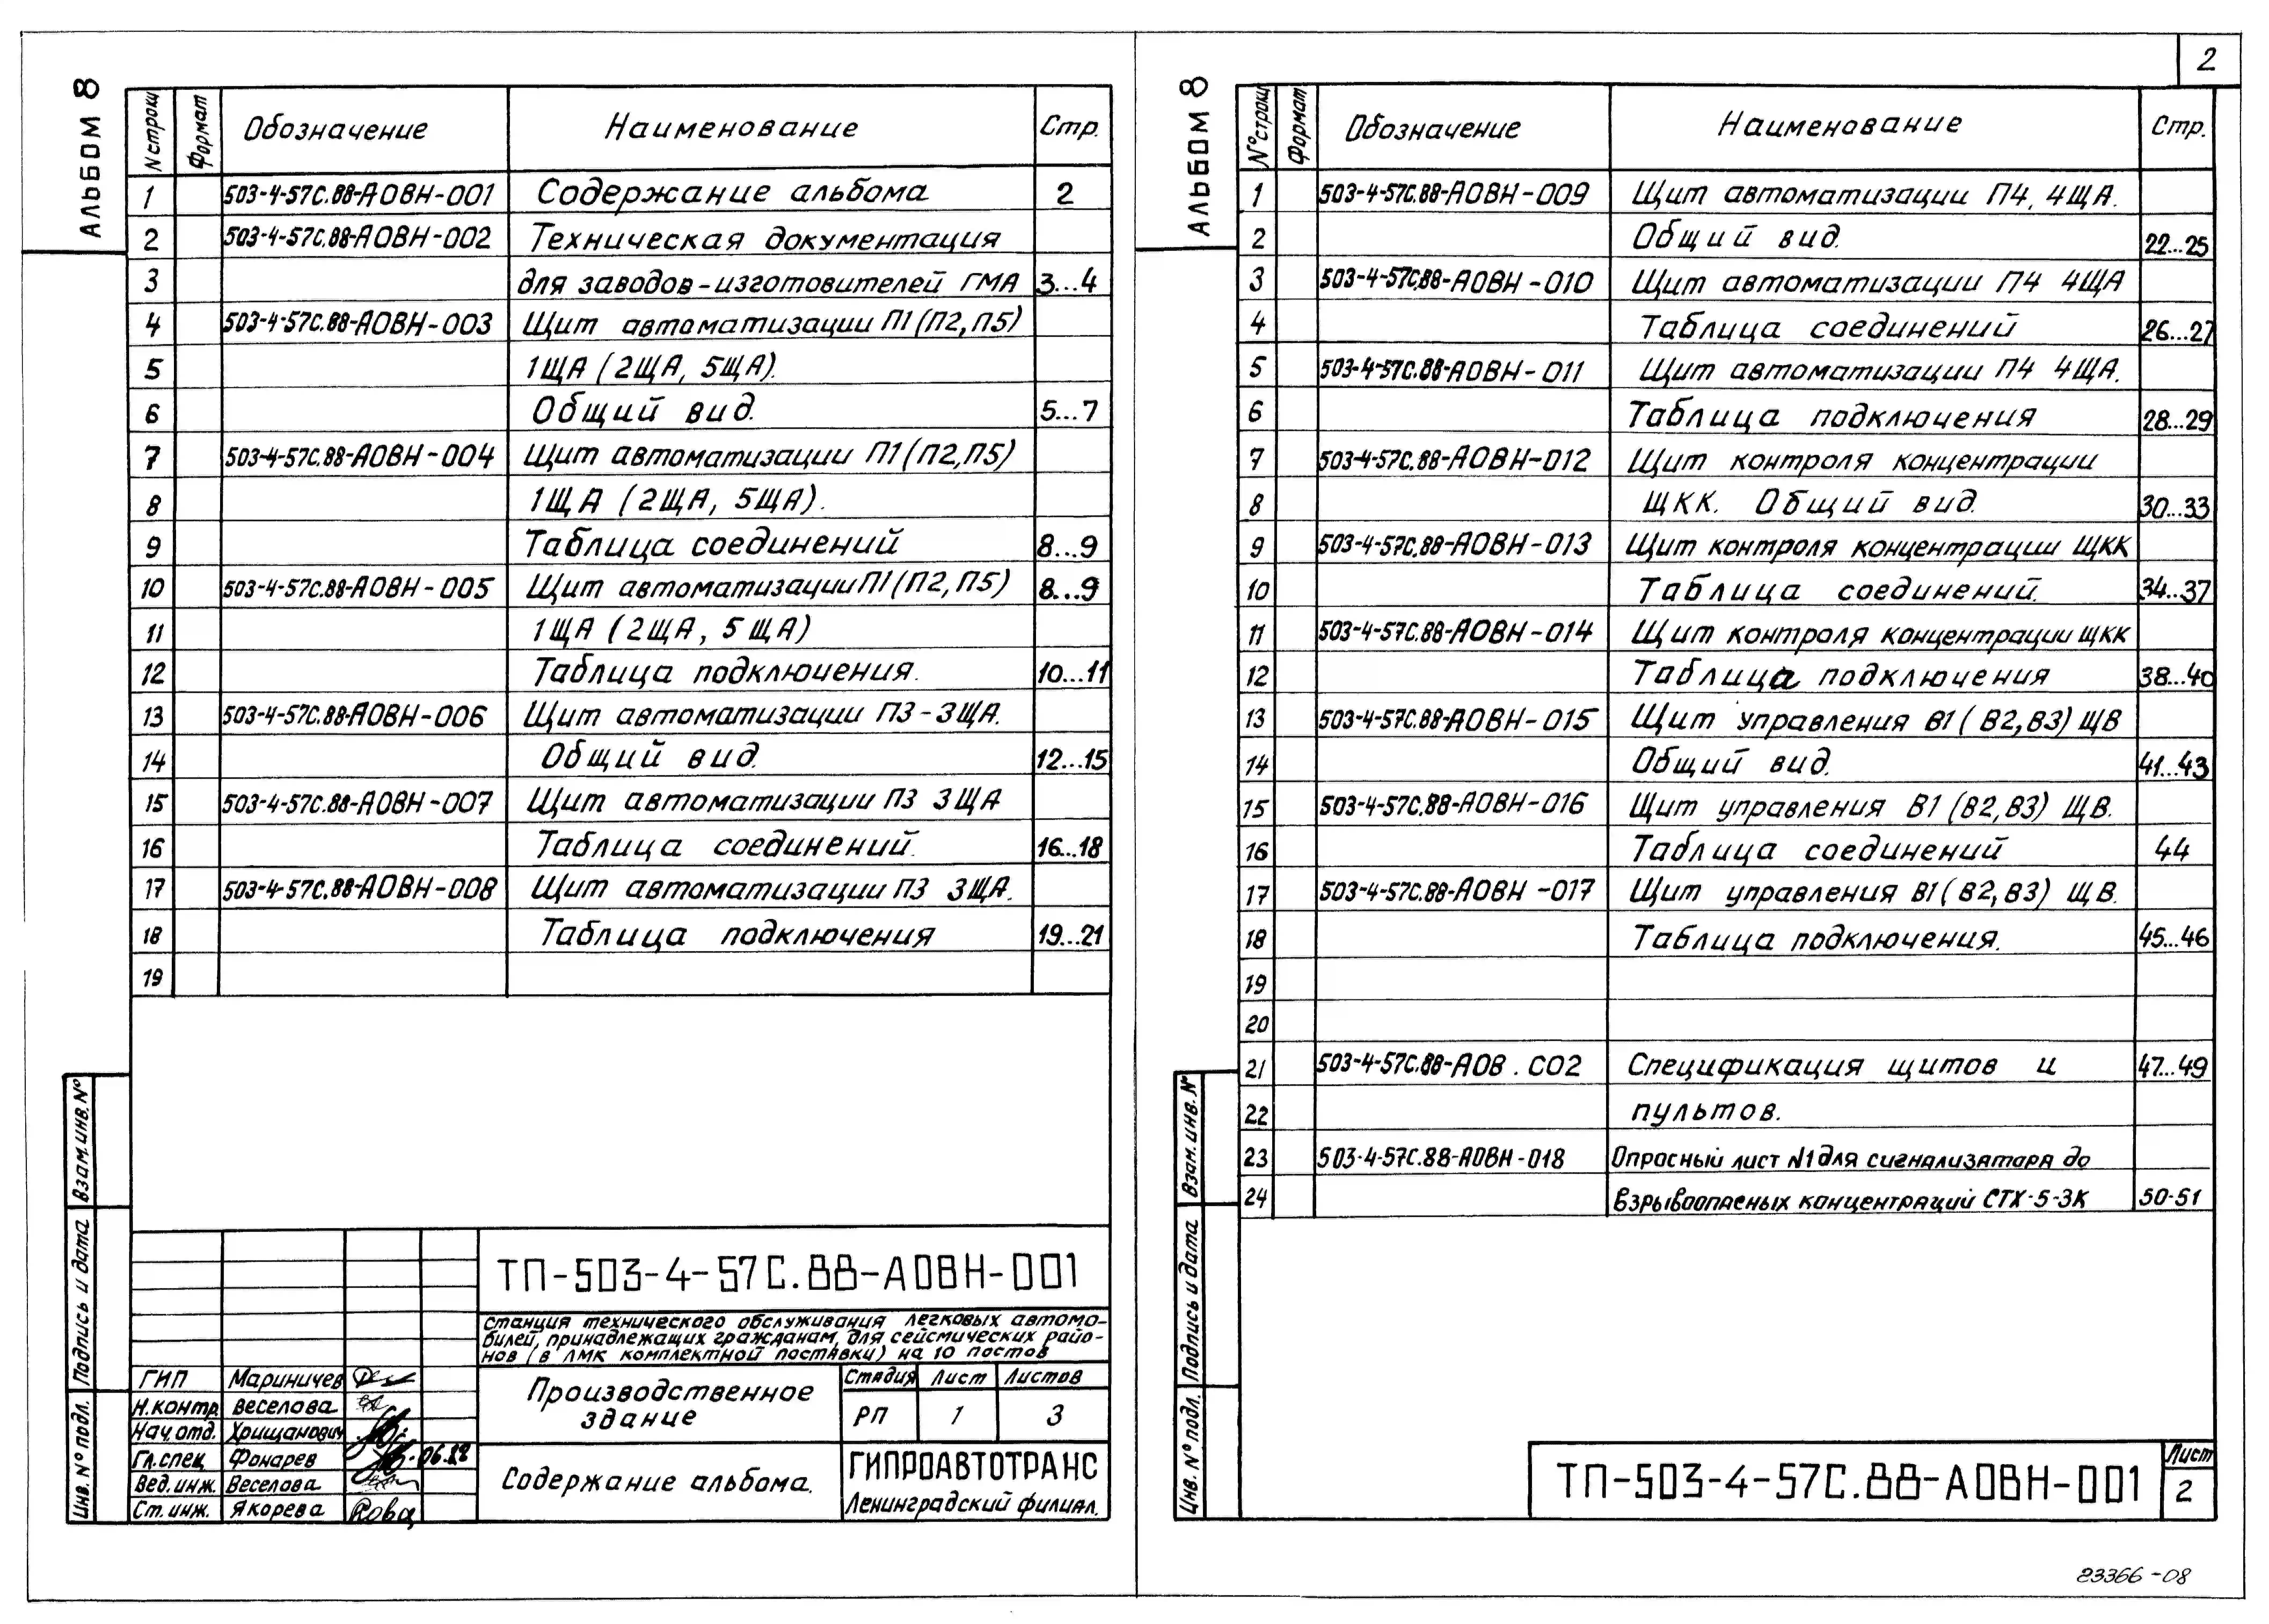 2
АЛЬБОМ 8
N строки Формат Обозначение Наименование Стр.
1 503-4-57С.88-АОВН-001 Содержание альбома 2
2 503-4-57С.88-АОВН-002 Техническая документация
3 для заводов-изготовителей ГМА 3...4
4 503-4-57С.88-АОВН-003 Щит автоматизации П1(П2,П5)
5 1ЩА (2ЩА, 5ЩА).
6 Общий вид. 5...7
7 503-4-57С.88-АОВН-004 Щит автоматизации П1(П2,П5)
8 1ЩА (2ЩА, 5ЩА).
9 Таблица соединений 8...9
10 503-4-57С.88-АОВН-005 Щит автоматизации П1(П2,П5) 8...9
11 1ЩА (2ЩА, 5ЩА)
12 Таблица подключения. 10...11
13 503-4-57С.88-АОВН-006 Щит автоматизации П3-3ЩА.
14 Общий вид. 12...15
15 503-4-57С.88-АОВН-007 Щит автоматизации П3 3ЩА
16 Таблица соединений. 16...18
17 503-4-57С.88-АОВН-008 Щит автоматизации П3 3ЩА.
18 Таблица подключения 19...21
19
Взам. инв. N°
Подпись и дата
Инв. N° подл.
ТП-503-4-57С.88-АОВН-001
станция технического обслуживания легковых автомо-
билей, принадлежащих гражданам, для сейсмических райо-
нов (в ЛМК комплектной поставки) на 10 постов
ГИП Мариничев
Н.контр. Веселова
Нач.отд. Хрищанович
Гл.спец Фонарев 06.88
Вед.инж. Веселова
Ст.инж. Якорева
Производственное
здание
Стадия Лист Листов
РП 1 3
Содержание альбома.
ГИПРОАВТОТРАНС
Ленинградский филиал.
АЛЬБОМ 8
N° строки Формат Обозначение Наименование Стр.
1 503-4-57С.88-АОВН-009 Щит автоматизации П4, 4ЩА.
2 Общий вид. 22...25
3 503-4-57С.88-АОВН-010 Щит автоматизации П4 4ЩА
4 Таблица соединений 26...27
5 503-4-57С.88-АОВН-011 Щит автоматизации П4 4ЩА.
6 Таблица подключения 28...29
7 503-4-57С.88-АОВН-012 Щит контроля концентрации
8 ЩКК. Общий вид. 30...33
9 503-4-57С.88-АОВН-013 Щит контроля концентрации ЩКК
10 Таблица соединений. 34...37
11 503-4-57С.88-АОВН-014 Щит контроля концентрации ЩКК
12 Таблица подключения 38...40
13 503-4-57С.88-АОВН-015 Щит управления В1(В2,В3) ЩВ
14 Общий вид. 41...43
15 503-4-57С.88-АОВН-016 Щит управления В1(В2,В3) ЩВ.
16 Таблица соединений 44
17 503-4-57С.88-АОВН-017 Щит управления В1(В2,В3) ЩВ.
18 Таблица подключения. 45...46
19
20
21 503-4-57С.88-АОВ.СО2 Спецификация щитов и 47...49
22 пультов.
23 503-4-57С.88-АОВН-018 Опросный лист N1 для сигнализатора до
24 взрывоопасных концентраций СТХ-5-3К 50-51
Взам. инв. N°
Подпись и дата
Инв. N° подл.
ТП-503-4-57С.88-АОВН-001
Лист
2
23366-08